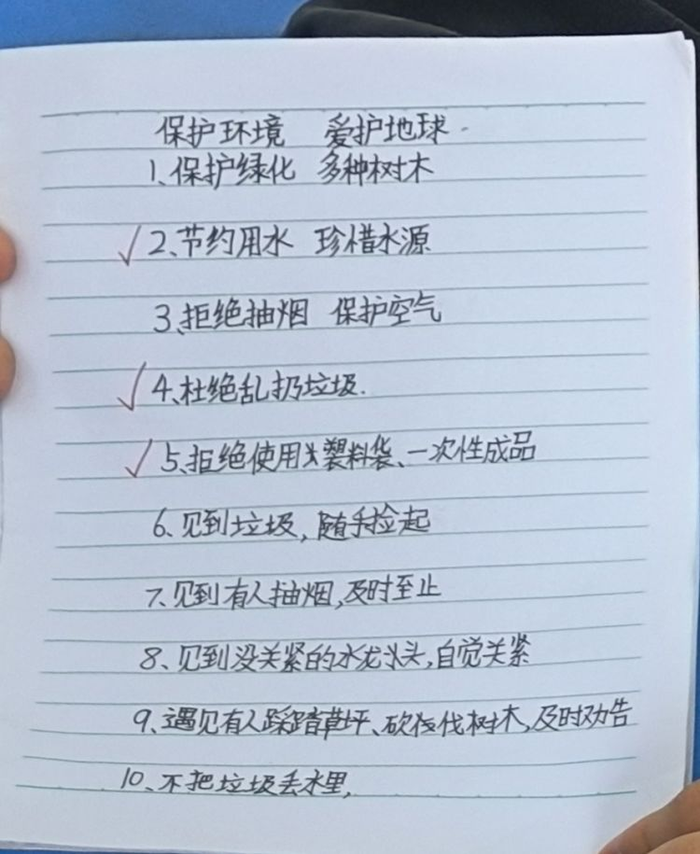 保护环境 爱护地球.
1、保护绿化 多种树木
✓2、节约用水 珍惜水源
3、拒绝抽烟 保护空气
✓4、杜绝乱扔垃圾.
✓5、拒绝使用塑料袋、一次性成品
6、见到垃圾,随手捡起
7、见到有人抽烟,及时至止
8、见到没关紧的水龙头,自觉关紧
9、遇见有人踩踏草坪、砍伐树木,及时劝告
10、不把垃圾丢水里,